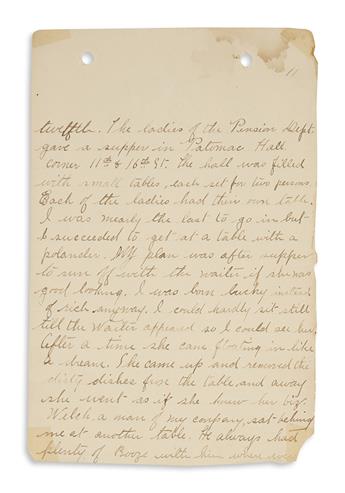 11
twelfth. The ladies of the Pension Dept.
gave a supper in Patomac Hall
corner 11th & 16th St. The hall was filled
with small tables, each set for two persons
Each of the ladies had their own table.
I was nearly the last to go in but
I succeeded to get at a table with a
polander. My plan was after supper
to run off with the waiter, if she was
good looking. I was born lucky instead
of rich anyway. I could hardly sit still
till the Waiter appeared so I could see her.
After a time she came floating in like
a dream. She came up and removed the
dirty dishes from the table and away
she went as if she knew her biz.
Welch, a man of my company, sat behind
me at another table. He always had
plenty of Booze with him when ever